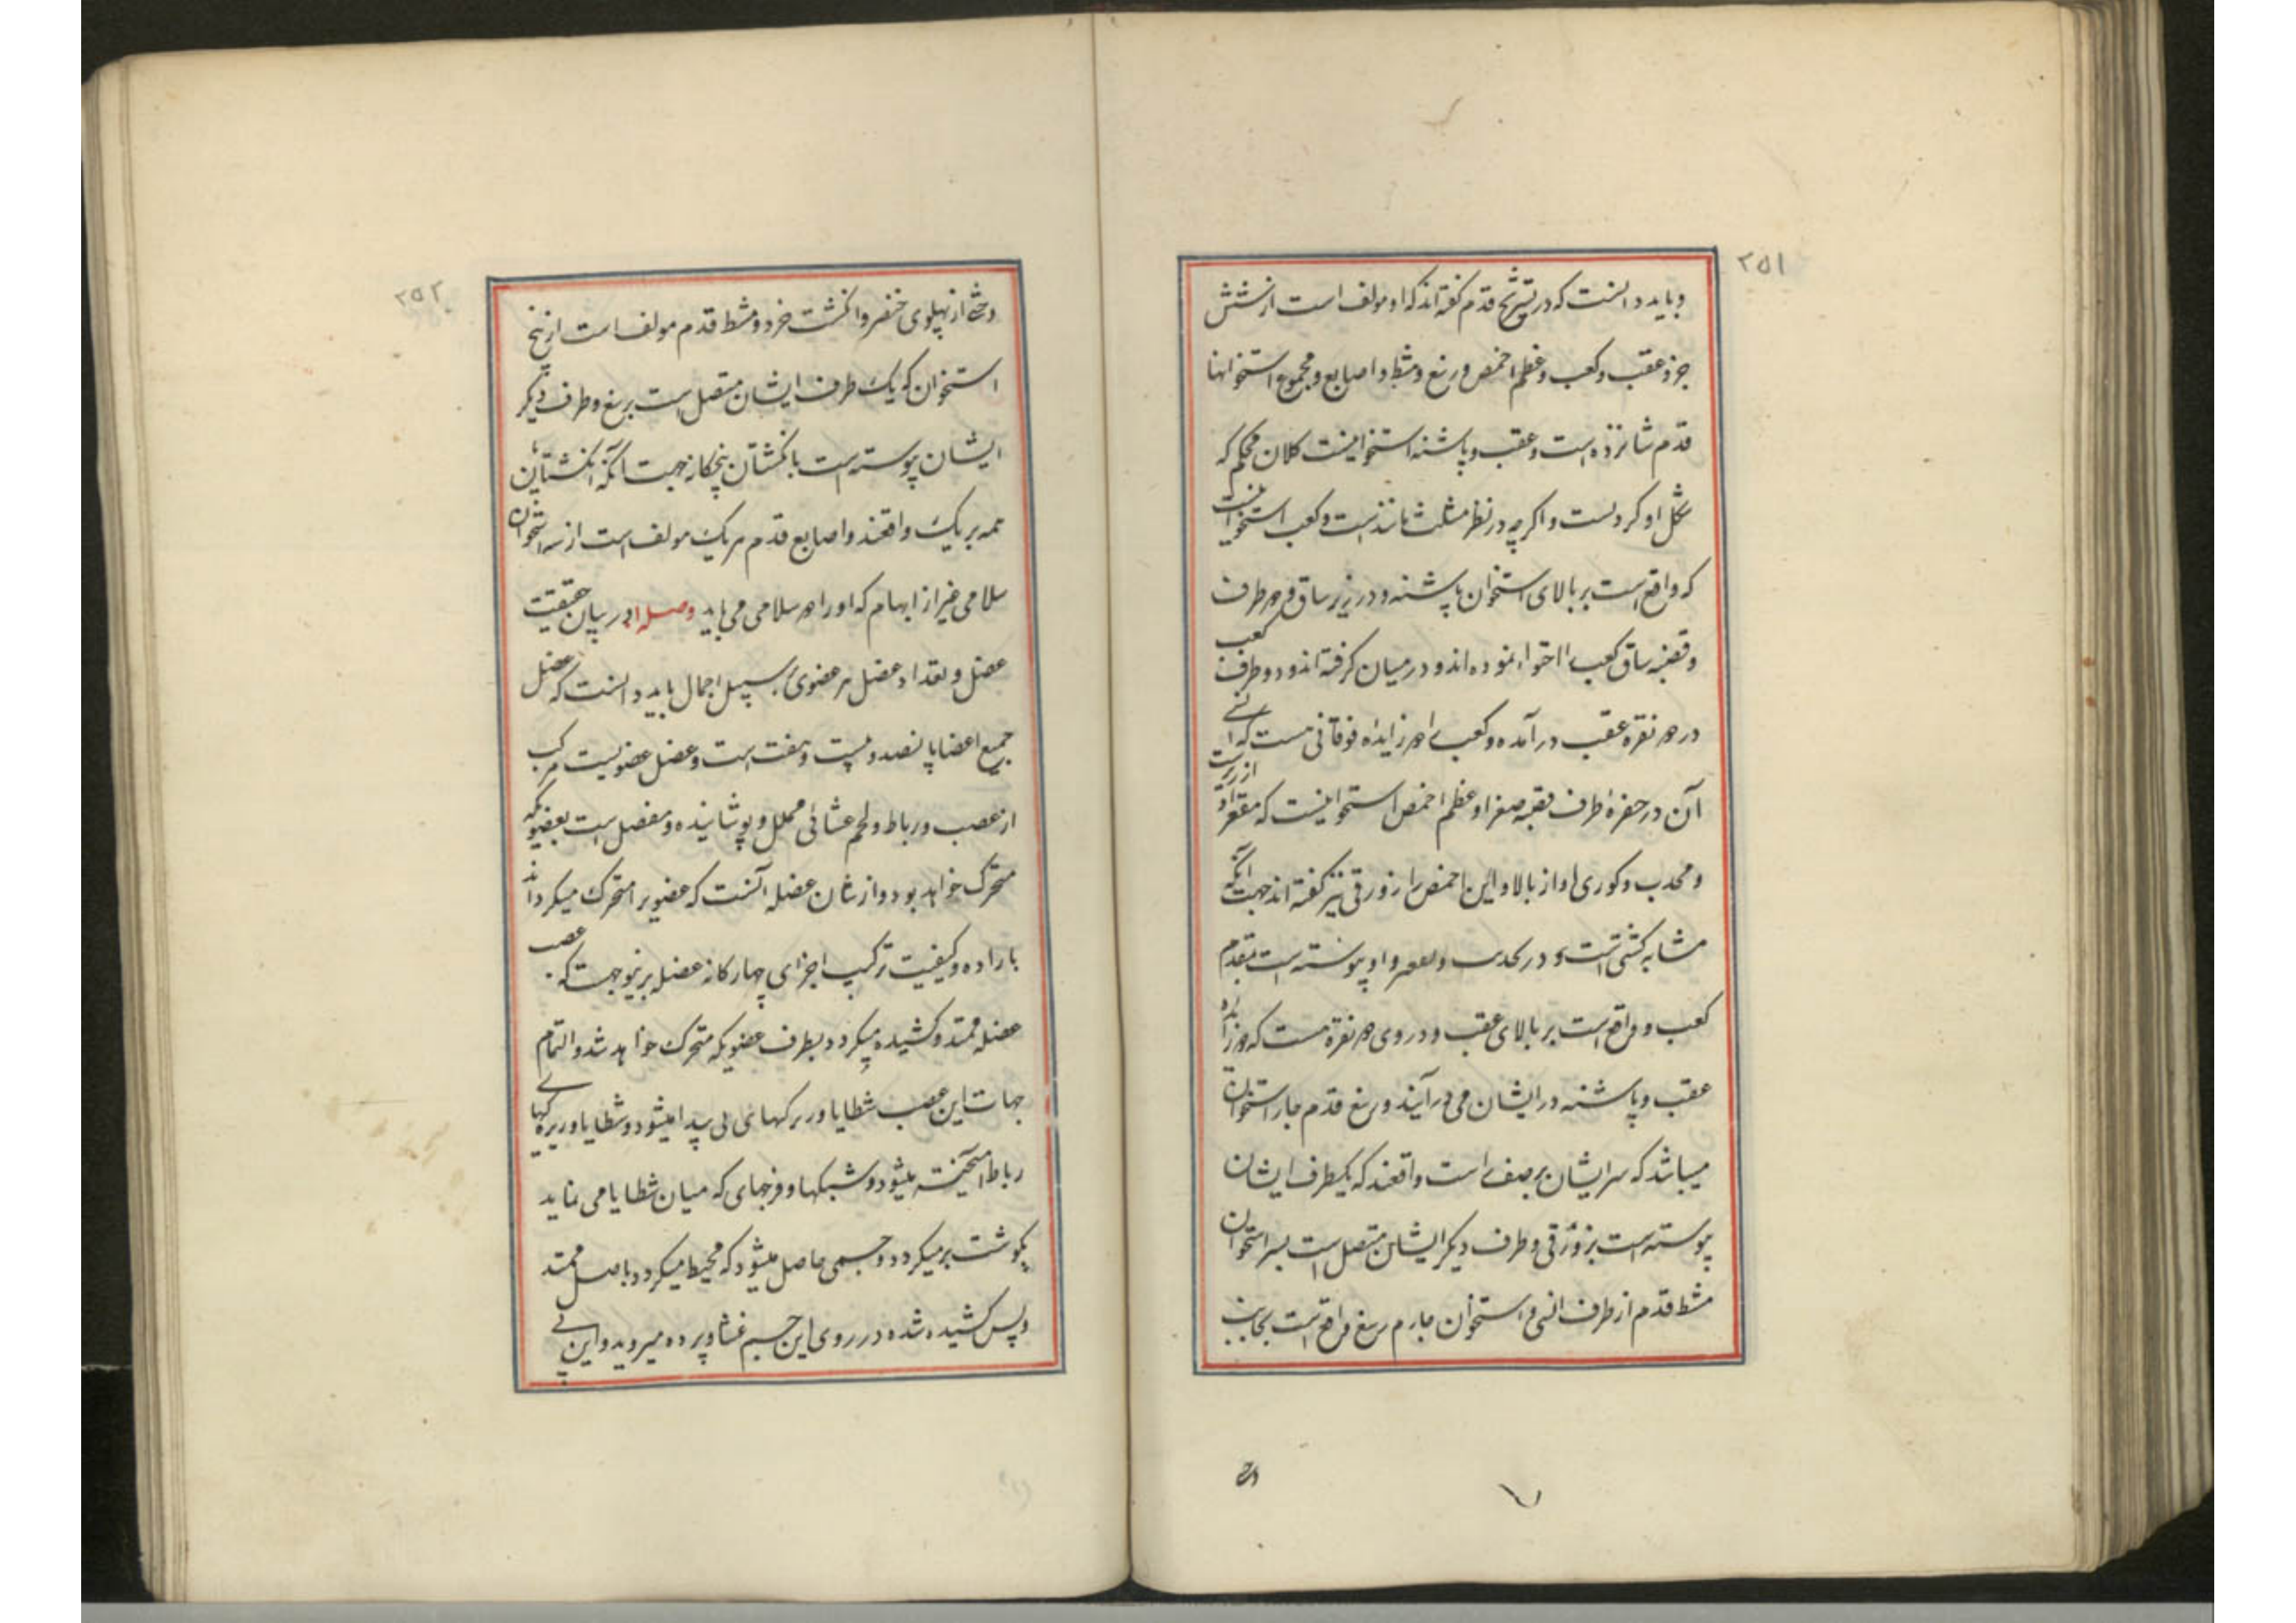 ۲۵۱
و باید دانست که در تشریح قدم گفته‌اند که او مولف است از شش
جزو عقب و کعب و عظم اخمص و رسغ و مشط و اصابع و مجموع استخوانها
قدم شانزده است و عقب و پاشنه استخوانیست کلان محکم که
شکل او کرد است و اکرچه در نظر مثلث مانند است و کعب استخوانیست
که واقع است بر بالای استخوان پاشنه و در زیر ساق و هر طرف
و قصبه ساق کعب را احتوا نموده‌اند و در میان کرفته‌اند و دو طرف کعب
در دو نقره عقب در آمده و کعب را دو زایده فوقانی هست که انسی
آن در حفره طرف قصبه صغرا و عظم اخمص استخوانیست که مقعر او از زیر است
و محدب و کوری او از بالا و این اخمص را زورقی نیز کفته‌اند جهت آنکه
مشابه کشتی است در تحدب و تقعر و او پیوسته است بمقدم
کعب و واقع است بر بالای عقب و در روی دو نقره هست که دو زایده
عقب و پاشنه در ایشان می در آیند و رسغ قدم چار استخوان
میباشد که سر ایشان بر صف است واقعند که یکطرف ایشان
پیوسته است بزورقی و طرف دیکر ایشان متصل است بسر استخوان
مشط قدم از طرف انسی و استخوان چارم رسغ واقع است بجانب
۲۵۲
وحشی از پهلوی خنصر و انکشت خرد و مشط قدم مولف است از پنج
استخوان که یک طرف ایشان متصل است برسغ و طرف دیکر
ایشان پیوسته است بانکشتان پنچکانه جهت آنکه انکشتان پا
همه بر یک واقعند و اصابع قدم هر یک مولف است از سه استخوان
سلامی غیر از ابهام که او را دو سلامی می باید وصله در بیان حقیقت
عضل و تعداد عضل هر عضوی بر سبیل اجمال باید دانست که عضل
جمیع اعضا پانصد و بیست و هفت است و عضل عضویست مرکب
از عصب و رباط و لحم غشائی مجلل و پوشاننده و مفصل است بعضویکه
متحرک خواهد بود و از شان عضله آنست که عضو را متحرک میکرداند
باراده و کیفیت ترکیب اجزای چهارکانه عضله برینوجهست که عصب
عضله ممتد و کشیده میکردد بطرف عضویکه متحرک خواهد شد و التمام
جهات این عصب شطایا و ریزکهای پی پیدا میشود و شطایا و ریزکهای
رباط آمیخته میشود و شبکها و فرجهای که میان شطایا می نماید
بکوشت بر میکردد و جسمی حاصل میشود که محیط میکردد باصل ممتد
و پس کشیده شده در روی این جسم غشا و پرده میروید و این پی